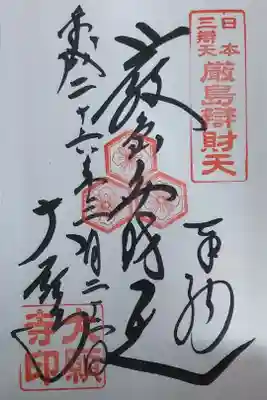 日本
三辯天
厳島辯財天
奉拝
厳島弁財天
平成二十六年三月二十日
大聖院
大願
寺印